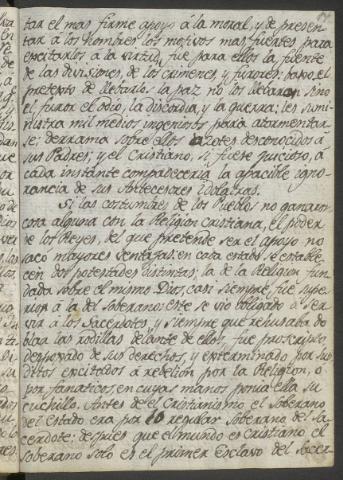 tar el mas firme apoyo á la moral, y de presen-
tar á los hombres los motivos mas fuertes para
excitarlos á la virtud, fue para ellos la fuente
de las divisiones, de los crimenes, y furores: baxo el
pretexto de llebarles la paz no les llebaron sino
el furor el odio, la discordia, y la guerra: les sumi-
nistra mil medios ingeniosos para atormentar-
se: derrama sobre ellos azotes desconocidos á
sus Padres; y el Cristiano, si fuese juicioso, á
cada instante compadeceria la apacible igno-
rancia de sus Antecesores Ydolatras.
Si las costumbres de los Pueblos no ganaron
cosa alguna con la Religion Cristiana, el poder
de los Reyes, del que pretende ser el apoyo no
sacó mayores ventajas: en cada estado se estable-
cen dos potestades distintas; la de la Religion fun-
dada sobre el mismo Dios, casi siempre fue supe-
rior á la del Soberano: este se vio obligado á ser-
vir á los Sacerdotes, y siempre que rehusaba do-
blar las rodillas delante de ellos, fue proscripto,
despojado de sus derechos, y exterminado por sus
subditos excitados á rebelion por la Religion, ó
por fanaticos, en cuyas manos ponia ella su
cuchillo. Antes de el Cristianismo el Soberano
del Estado era por lo regular Soberano del Sa-
cerdote: despues que el mundo es Cristiano el
Soberano solo es el primer Esclavo del Sacer-